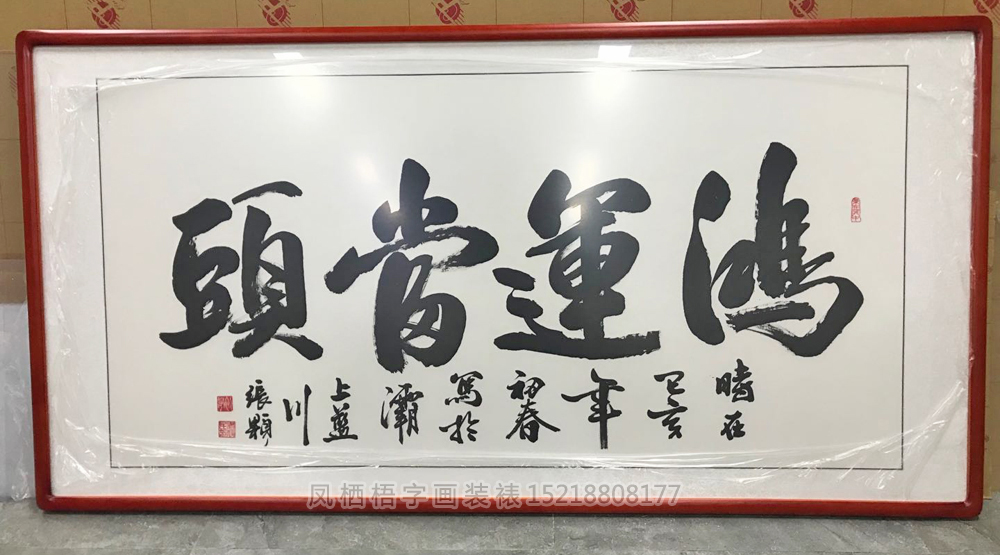 鴻運當頭
時在己亥年初春寫於灞上藍川張顥
凤栖梧字画装裱15218808177